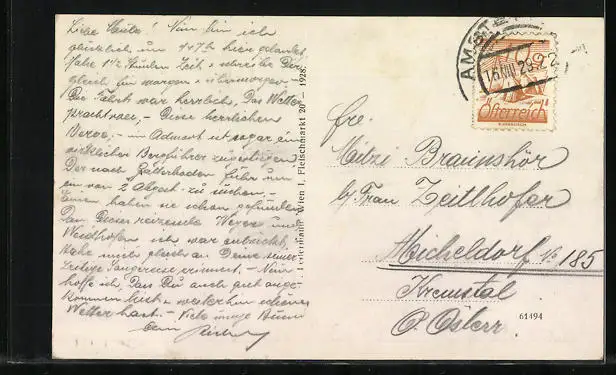 Liebe Mitzi! Nun bin ich
glücklich um 1/4 7h hier gelandet
Habe 1 1/2 Stunden Zeit u. schreibe Dir
gleich für morgen u. übermorgen –
Die Fahrt war herrlich, Das Wetter
prachtvoll, – Diese herrlichen
Berge, – in Admont ist sogar ein
wirklicher Bergführer zugestiegen
Der nach
ein von 2 zu suchen, –
Einen haben sie schon gefunden
Dann Diese reizende Weyer und
Waidhofen ich war entzückt,
Habe mich gleich an Deine
erinnert. – Nun
hoffe ich, Dass Du auch gut ange-
kommen bist u. weiterhin schönes
Wetter hast. – Viele innige Bussi
Dein
Wien I, Fleischmarkt 20 – 1928.
AMSTETTEN
16.VIII.29
Österreich
Frl.
Mitzi Braunshör
b/ Frau Zeitlhofer
Micheldorf No 185
Kremstal
O. Österr.
61494